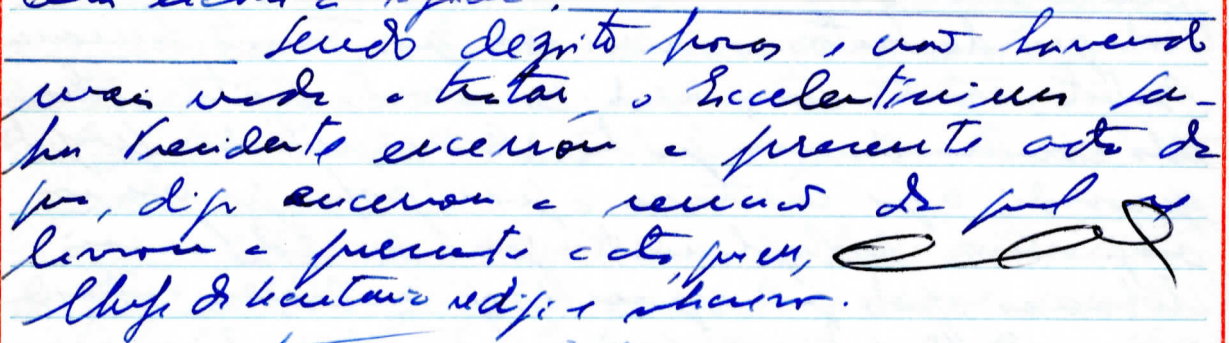 Sendo dezoito horas e não havendo
mais nada a tratar, o Excelentíssimo Se-
nhor Presidente encerrou a presente acta da
que, digo encerrou a reunião da qual se
lavrou a presente acta, que eu,
Chefe de Secretaria redigi e subscrevo.